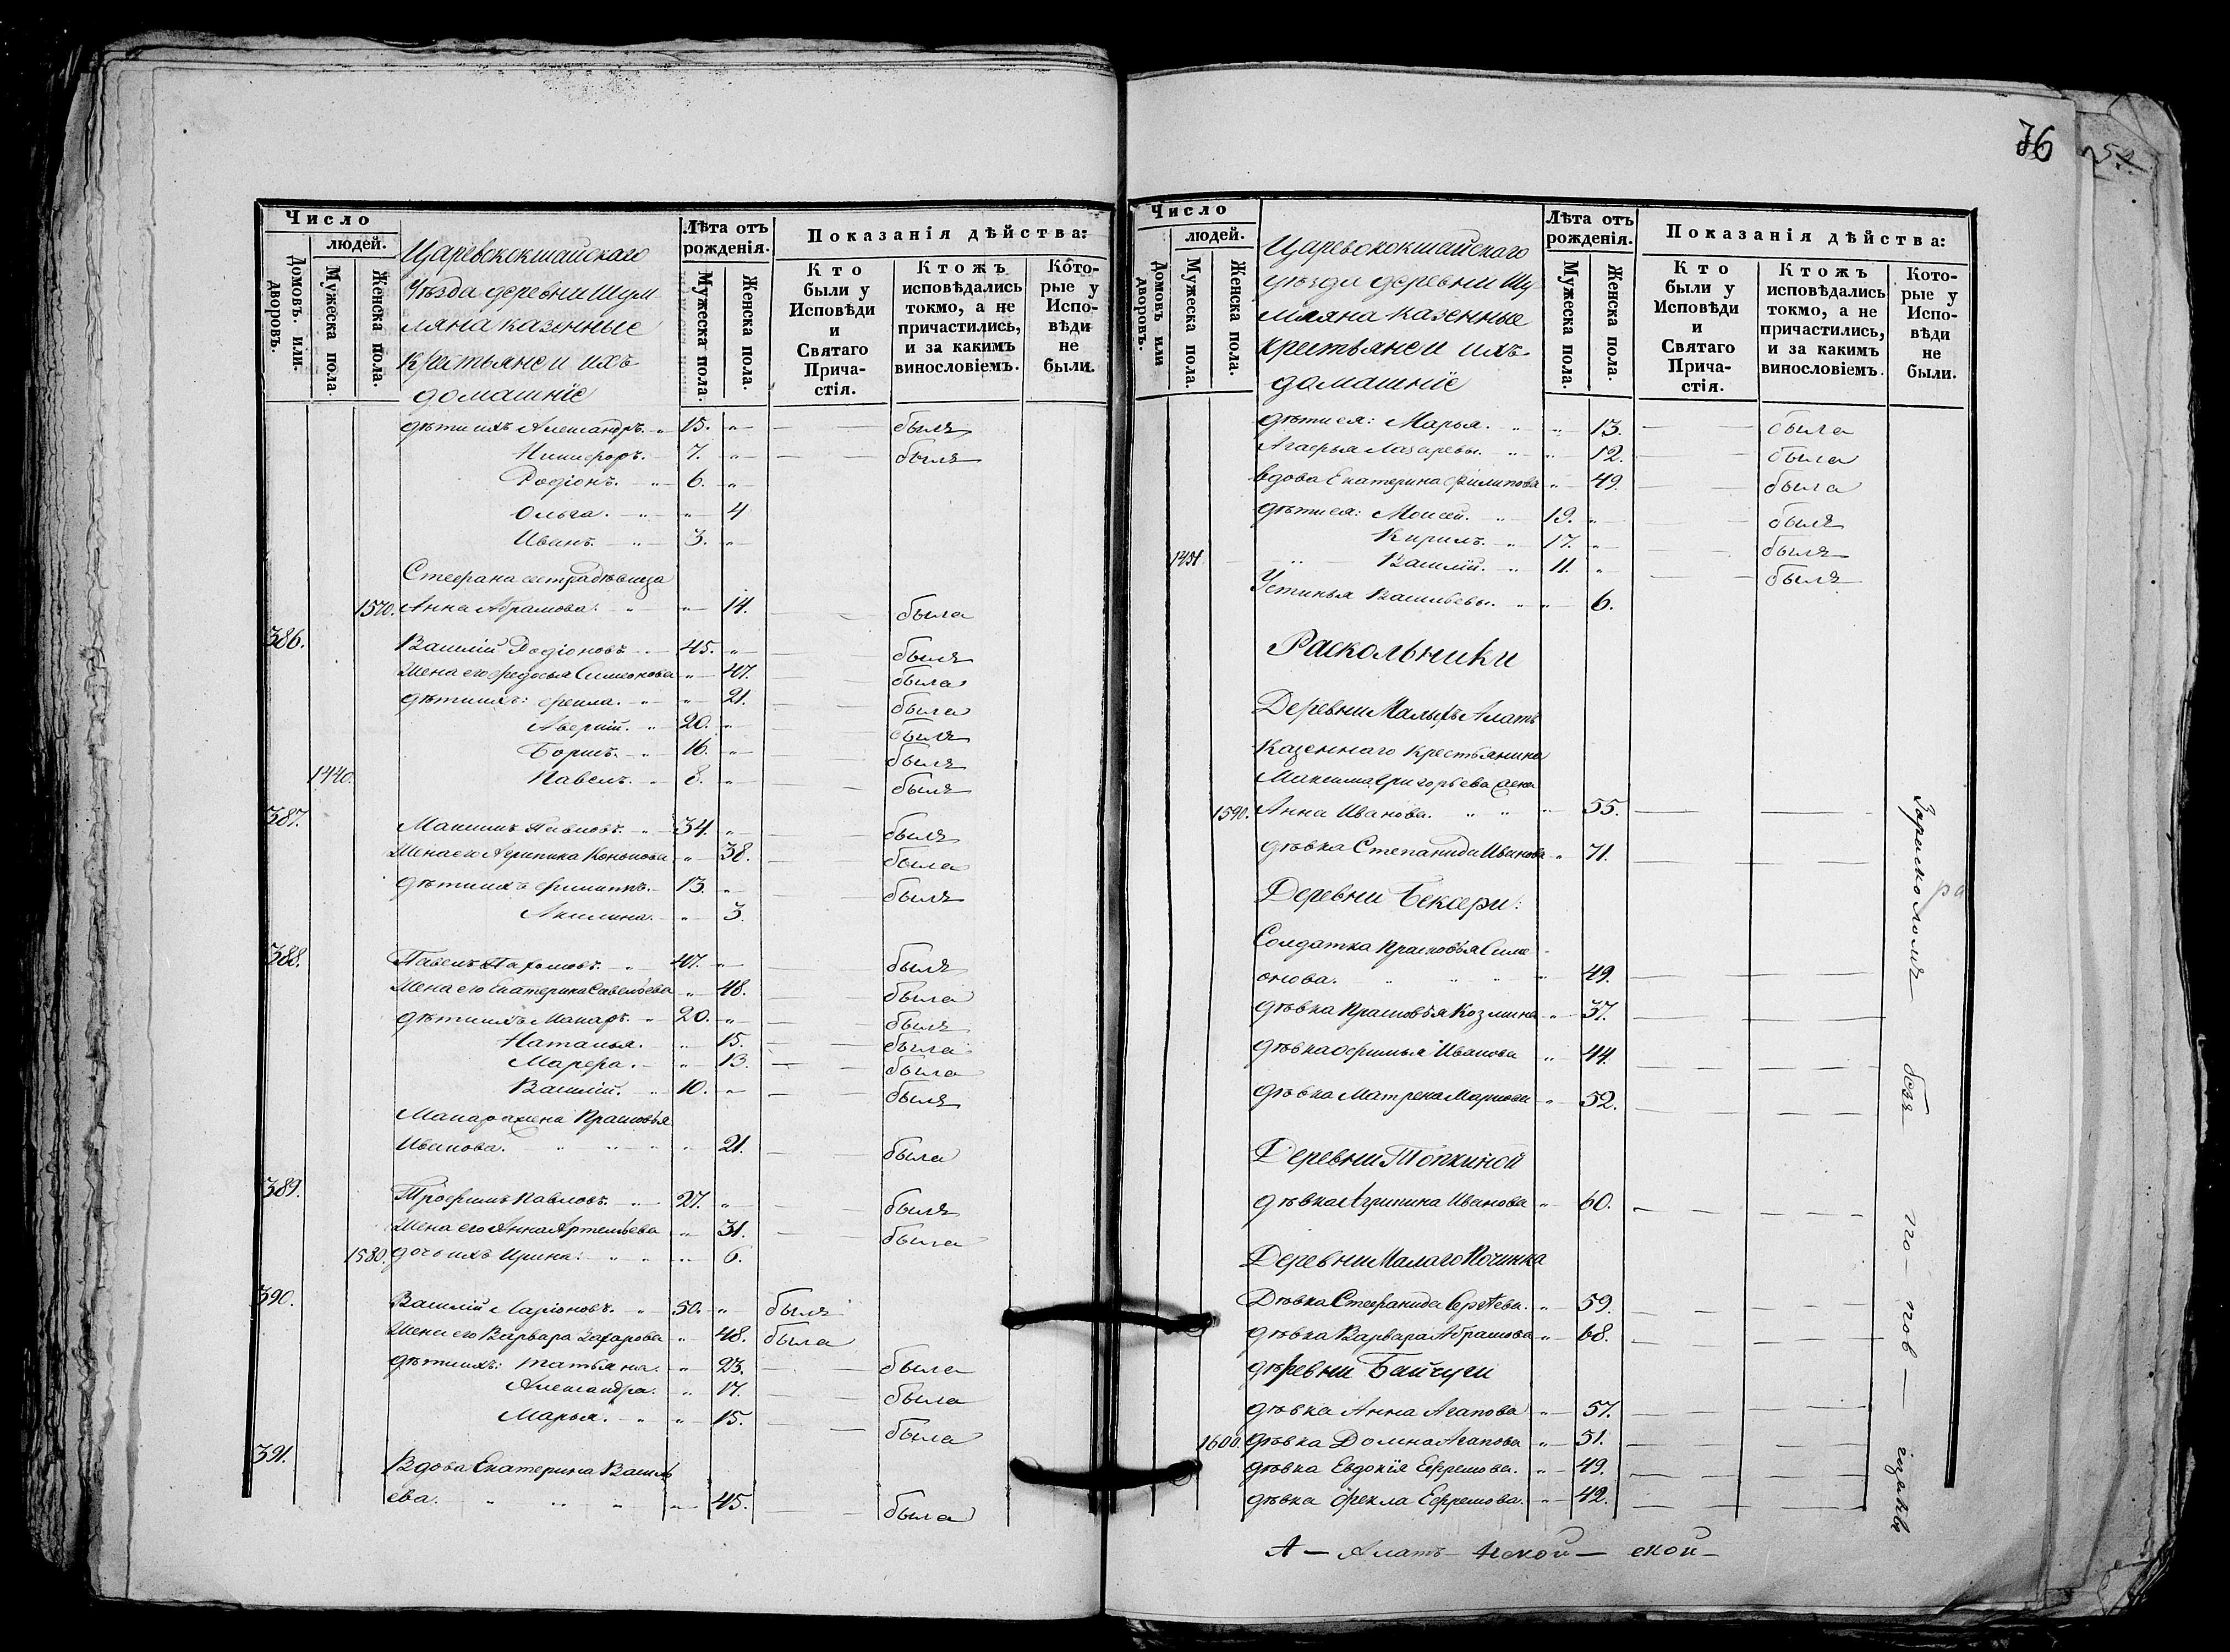 Число
людей.
Домовъ или дворовъ.
Мужеска пола.
Женска пола.
Царевококшайскаго
Уѣзда деревни Шум-
ляна казенные
Крестьяне и ихъ
домашніе
Лѣта отъ рожденія.
Мужеска пола.
Женска пола.
Показанія дѣйства:
Кто были у Исповѣди и Святаго Прича-стія.
Ктожъ исповѣдались токмо, а не причастились, и за какимъ винословіемъ.
Кото-рые у Испо-вѣди не были.
дѣти ихъ Александръ. " 15. " — — былъ
Никифоръ. 7. " — — былъ
Родіонъ. " 6. "
Ольга. " " 4
Иванъ. " 3. "
Стефана сестра дѣвица
1570. Анна Абрамова. " " 14. — — была
386. Василій Родіоновъ. 45. " — былъ
Жена его Федосья Симионова " 47. — была
дѣти ихъ: Фекла. " " 21. — была
Аверкій. " 20. " былъ
Борисъ. " 16. " — былъ
1440. Павелъ. " 8. " — — былъ
387. Максимъ Павловъ. " 34. " — — былъ
Жена его Агрипина Кононова " 38. — — была
дѣти ихъ Филиппъ. 13. " — — былъ
Акилина. " 3.
388. Павелъ Пахомовъ. " 47. " — — былъ
Жена его Екатерина Савельева " 48. — — была
дѣти ихъ Макаръ. " 20. " — — былъ
Наталья. " 15. — — была
Марфа. " 13. — — была
Василій. " 10. " — — былъ
Макара жена Прасковья
Иванова. " " " " 21. — — была
389. Трофимъ Павловъ. " 27. " — — былъ
Жена его Анна Артемьева " 31. — — была
1580. дочь ихъ Ирина. " " " 6.
390. Василій Ларіоновъ. " 50. " былъ
Жена его Варвара Захарова " 48. была
дѣти ихъ: Татьяна. " 23. — — была
Александра. " 17. — — была
Марья. " " 15. — — была
391. Вдова Екатерина Василь
ева. " " " " 45. — — была
76
52
Число
людей.
Домовъ или дворовъ.
Мужеска пола.
Женска пола.
Царевококшайскаго
уѣзда деревни Шу
мляна казенные
крестьяне и ихъ
домашніе
Лѣта отъ рожденія.
Мужеска пола.
Женска пола.
Показанія дѣйства:
Кто были у Исповѣди и Святаго Прича-стія.
Ктожъ исповѣдались токмо, а не причастились, и за какимъ винословіемъ.
Кото-рые у Испо-вѣди не были.
дѣти ея: Марья. " " 13. — — была
Агафья Лазаревы. " " 12. — была
вдова Екатерина Филипова " 49. — — была
дѣти ея: Моисей. " 19. " — былъ
Кирилъ. " 17. " — — былъ
Василій. " 11. " — — былъ
Устинья Васильевы. " " 6.
Раскольники
Деревни Малыхъ Алатъ
казеннаго крестьянина
Максима Григорьева жена
1590. Анна Иванова. " " " 55. — — —
дѣвка Степанида Иванова " 71. — — —
Деревни Бексери:
Солдатка Прасковья Симе
онова. " " " " 49. — — —
дѣвка Прасковья Козмина " 37. — — —
дѣвка Офимья Иванова " 44. — — —
дѣвка Матрена Маркова " 52. — — —
Деревни Топкиной
дѣвка Агрипина Иванова " 60. — — —
Деревни Малаго Починка
Дѣвка Стефанида Сергѣева. " 59. — — —
дѣвка Варвара Абрамова " 68. — — —
деревни Байчуги
дѣвка Анна Агапова " 57. — — —
1600. дѣвка Домна Агапова " 51. — — —
дѣвка Евдокія Ефремова. " 49. — — —
дѣвка Фекла Ефремова. " 42. — — —
За расколомъ
А — Алатъ-
ской —